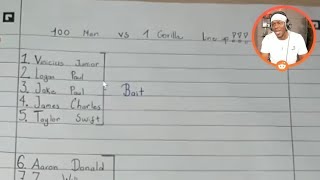 100 Men vs 1 Gorilla Line up???
1. Vinicius Junior
2. Logan Paul
3. Jake Paul Bait
4. James Charles
5. Taylor Swift
6. Aaron Donald
7.